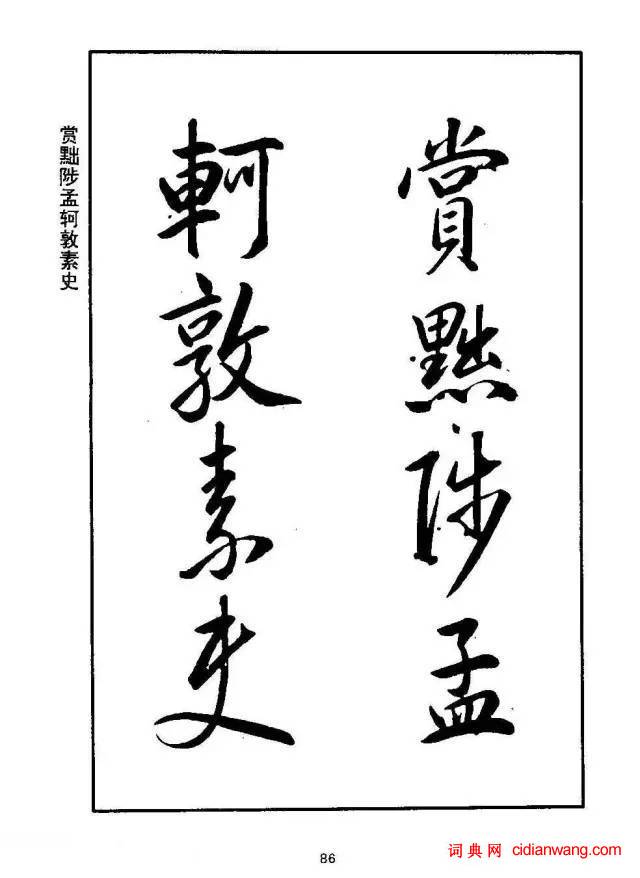 賞黜陟孟
軻敦素史
赏黜陟孟轲敦素史
86
词典网 cidianwang.com